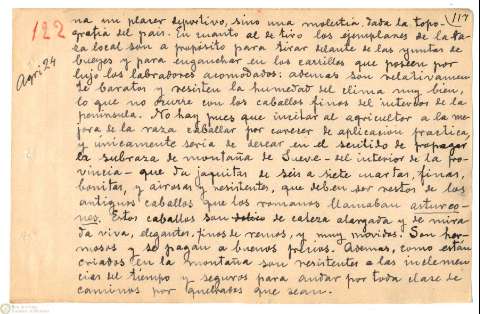 117
122
Agri 24
na un placer deportivo, sino una molestia, dada la topo-
grafía del pais. En cuanto al de tiro los ejemplares de la ra-
za local són a propósito para tirar delante de las yuntas de
bueyes y para enganchar en los carrillos que poseen por
lujo los labradores acomodados: ademas son relativamen
te baratos y resisten la humedad del clima muy bien,
lo que no ocurre con los caballos finos del interior de la
península. No hay pues que incitar al agricultor a la me-
jora de la raza caballar por carecer de aplicacion practica,
y únicamente seria de desear en el sentido de propagar
la subraza de montaña de Sueve - del interior de la pro-
vincia - que da jaquitas de seis a siete cuartas, finas,
bonitas, y airosas y resistentes, que deben ser restos de los
antiguos caballos que los romanos llamaban asturco-
nes. Estos caballos son de cabeza alargada y de mira-
da viva, elegantes, finos de remos, y muy movidos. Son her-
mosos y se pagan a buenos precios. Ademas, como están
criados en la montaña son resistentes a las inclemen-
cias del tiempo y seguros para andar por toda clase de
caminos por quebrados que sean.